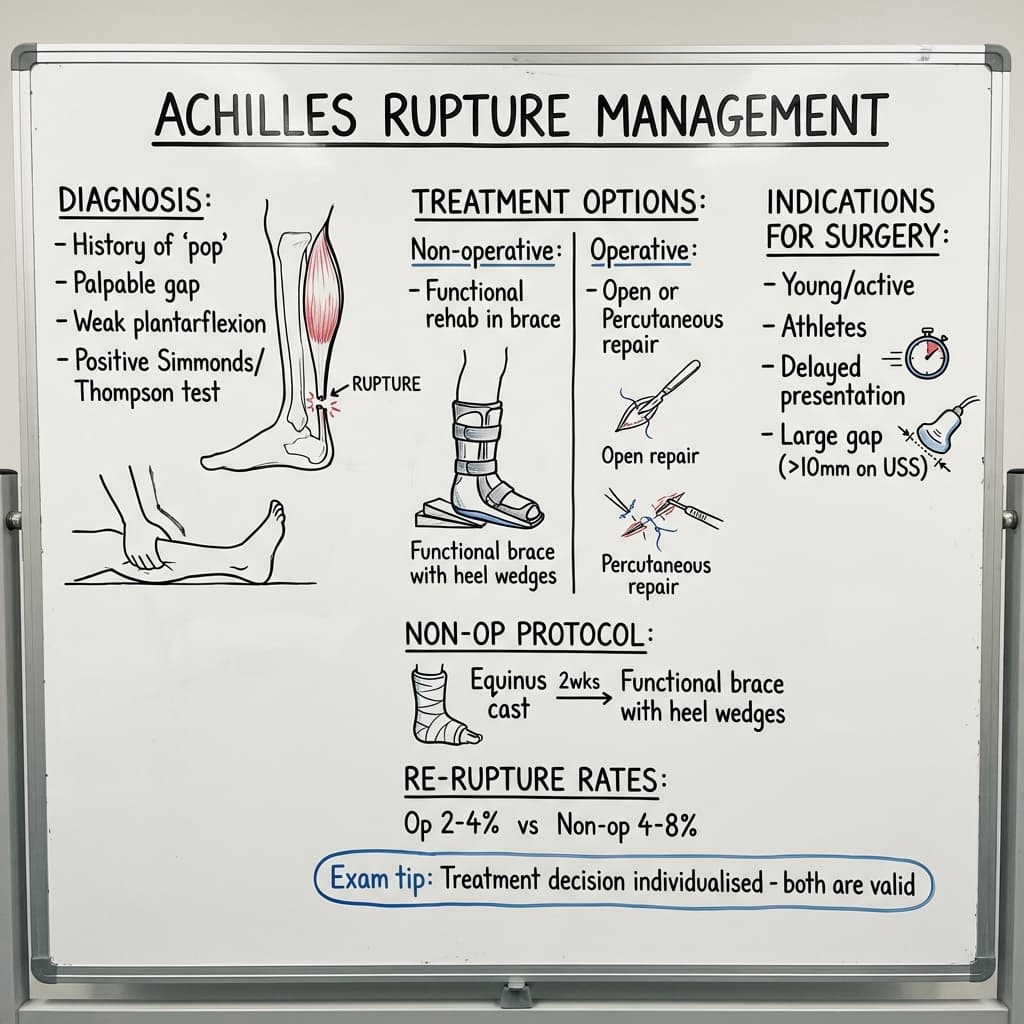 ACHILLES RUPTURE MANAGEMENT
DIAGNOSIS:
- History of ‘pop’
- Palpable gap
- Weak plantarflexion
- Positive Simmonds/
Thompson test
RUPTURE
TREATMENT OPTIONS:
Non-operative:
- Functional
rehab in brace
Functional brace
with heel wedges
Operative:
- Open or
Percutaneous
repair
Open repair
Percutaneous
repair
INDICATIONS
FOR SURGERY:
- Young/active
- Athletes
- Delayed
presentation
- Large gap
(>10mm on USS)
NON-OP PROTOCOL:
Equinus
cast
2wks
Functional brace
with heel wedges
RE-RUPTURE RATES:
Op 2-4% vs Non-op 4-8%
Exam tip: Treatment decision individualised - both are valid